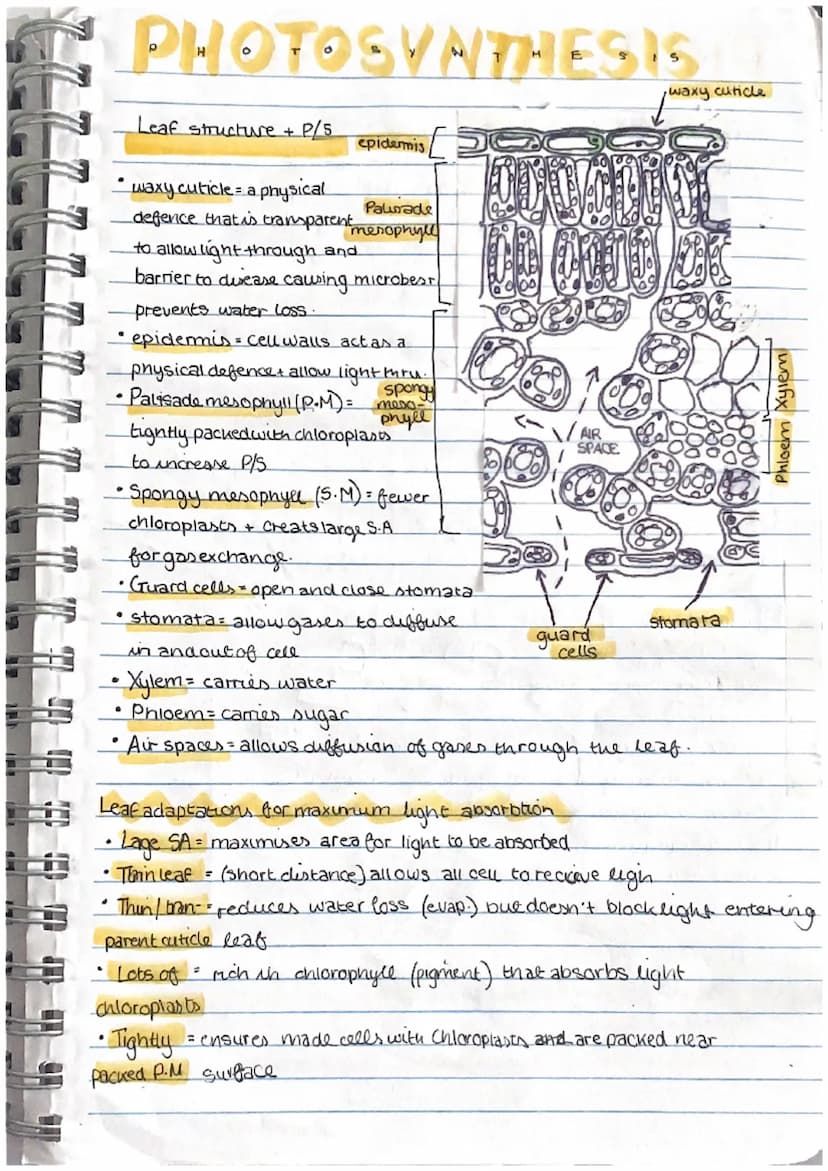 PHOTOSYNTHESIS
PHOTOSYNTHESIS
waxy cuticle
Leaf structure + P/S
epidermis
• waxy cuticle = a physical
defence that is transparent
Palisade
mesophyll
to allow light through and
barrier to disease causing microbes +
prevents water loss.
• epidermis = cell walls act as a
physical defence + allow light thru.
• Palisade mesophyll (P.M) =
spongy
meso-
phyll
tightly packed with chloroplasts
to increase P/S
• Spongy mesophyll (S.M) = fewer
chloroplasts + creats large S.A
for gas exchange.
• Guard cells = open and close stomata
• stomata = allow gases to diffuse
in and out of cell
• Xylem = carries water
• Phloem = carries sugar
• Air spaces = allows diffusion of gases through the leaf.
Xylem
Phloem
AIR
SPACE
guard
cells
stomata
Leaf adaptations for maximum light absorbtion
• Lage SA = maximises area for light to be absorbed
• Thin leaf = (short distance) allows all cell to recieve ligh
• Thin/tran- = reduces water loss (evap.) but doesn't block light entering
parent cuticle leaf
• Lots of = rich in chlorophyll (pigment) that absorbs light
chloroplasts
• Tightly = ensures made cells with chloroplasts and are packed near
packed P.M surface